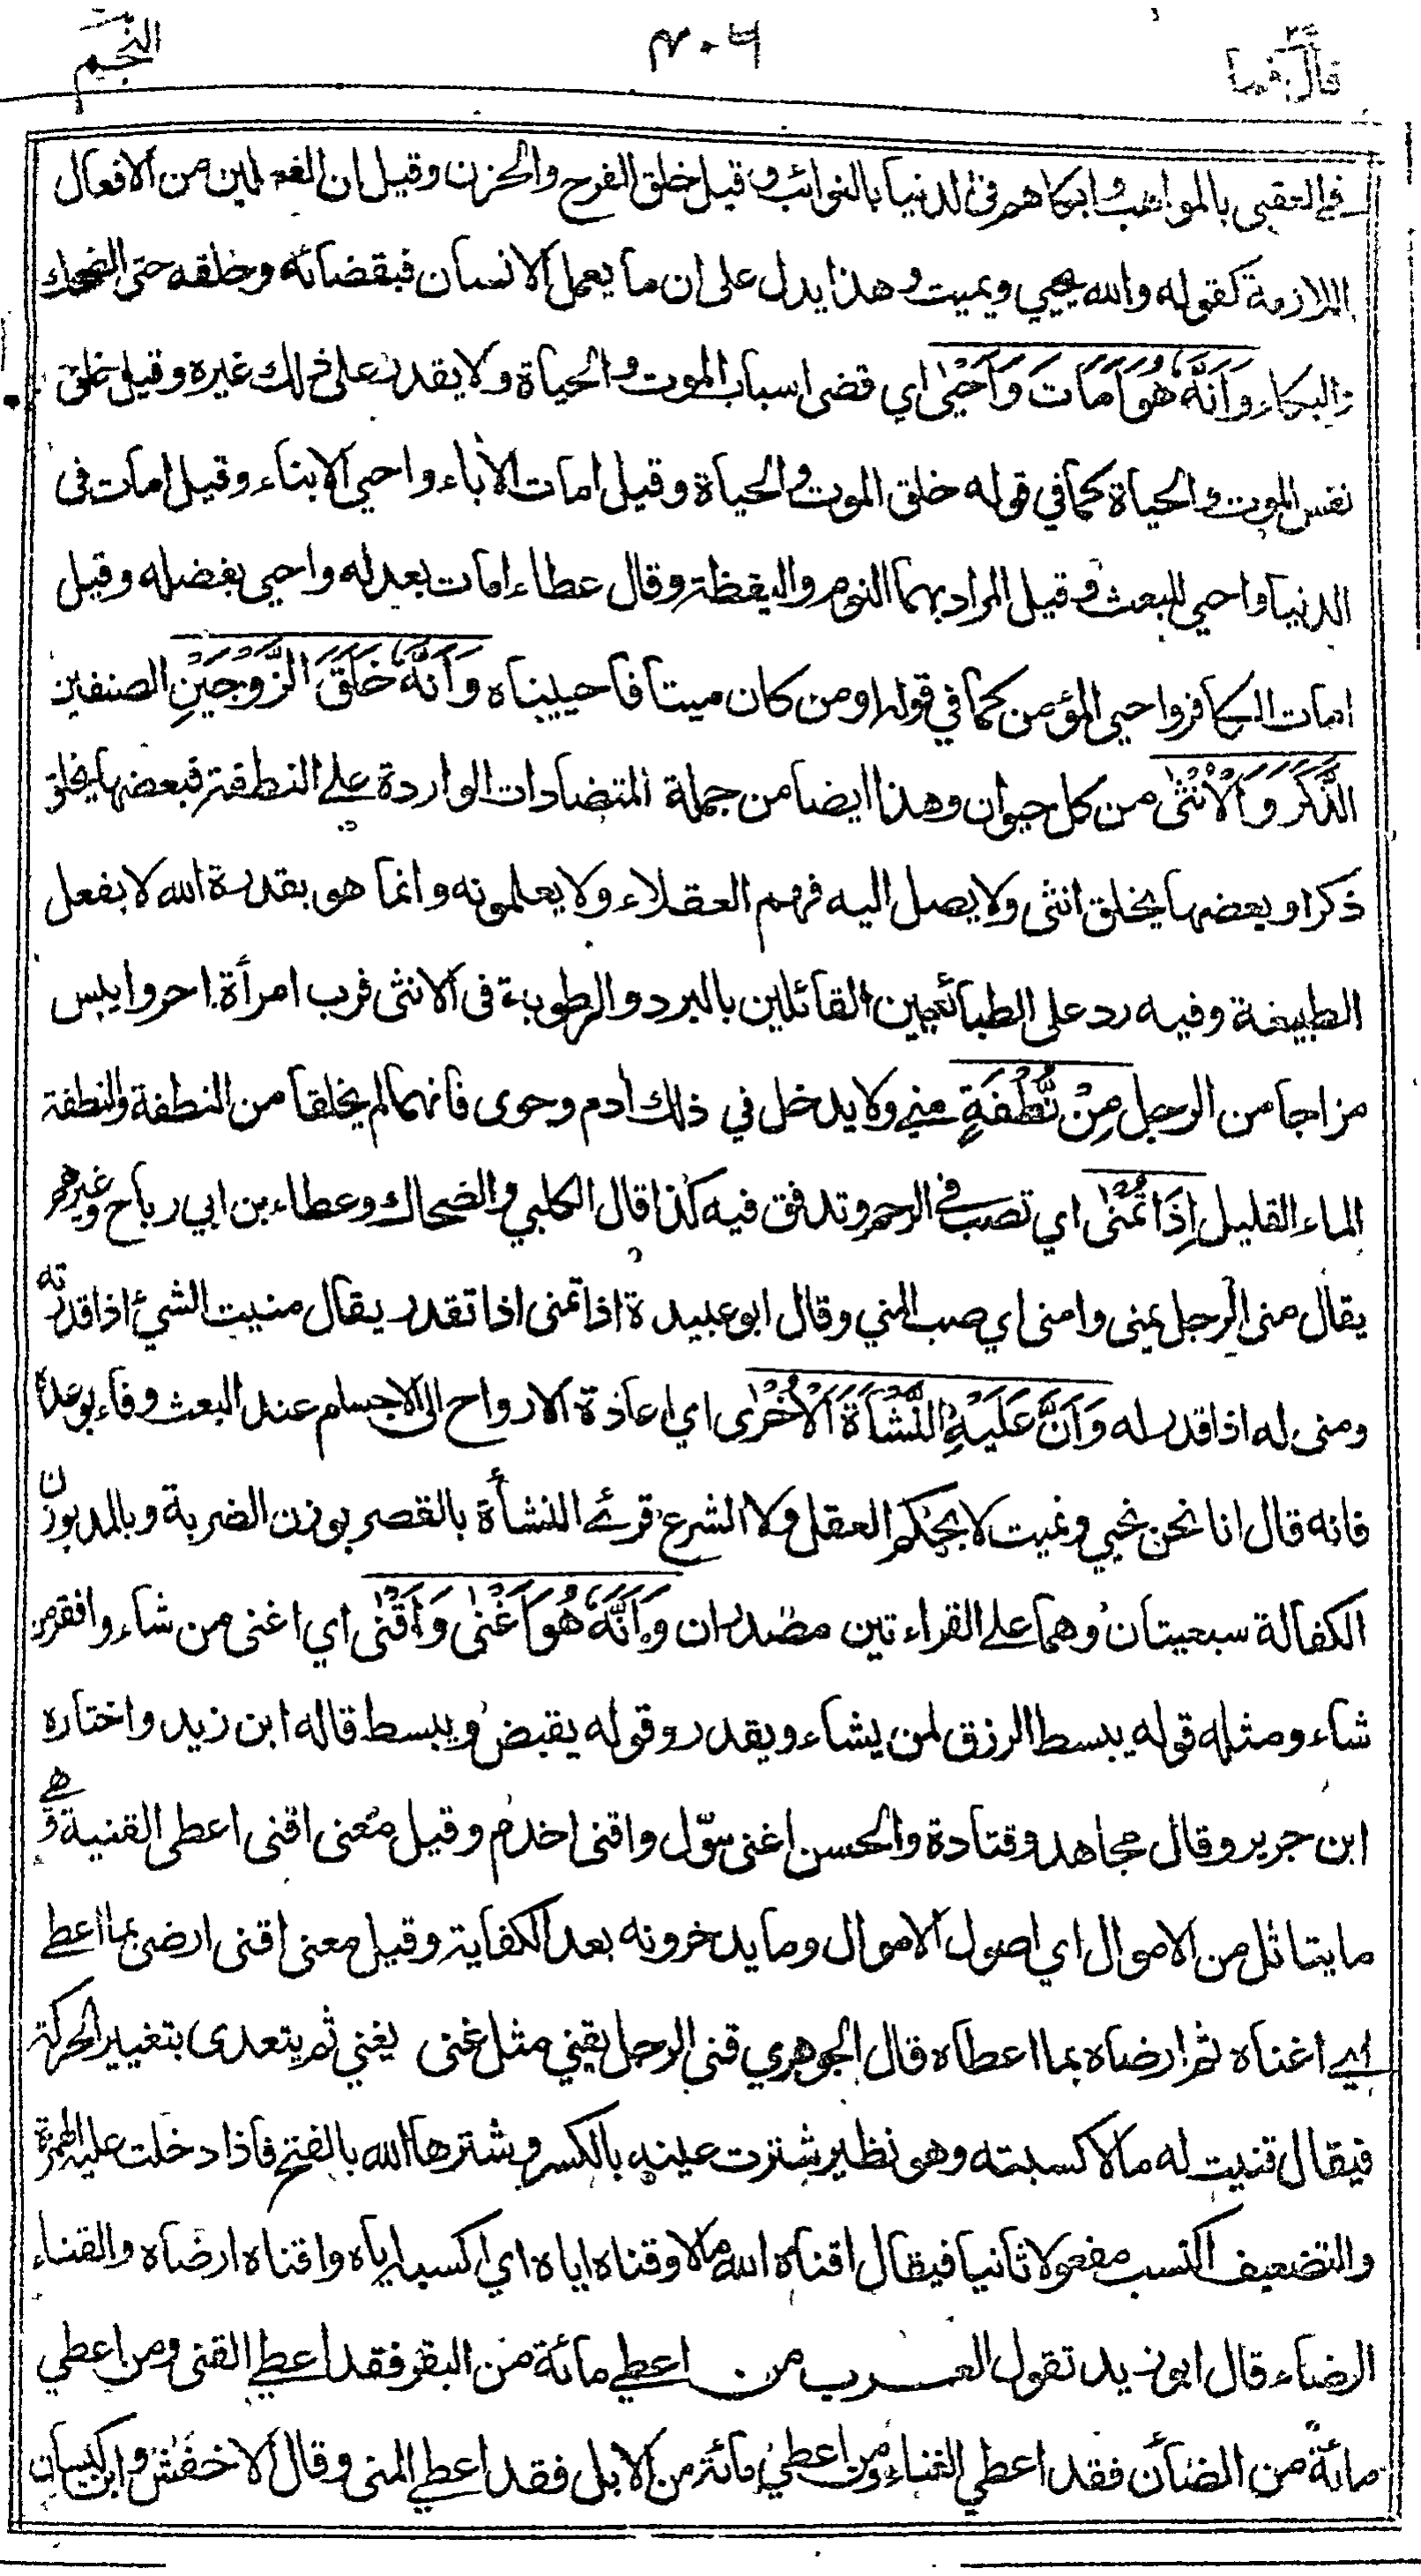 قال فما ٢٧
٤٠٦
النجم
في العقبى بالمواهب وابكاهم في الدنيا بالنوائب وقيل خلق الفرح والحزن وقيل ان الفعلين من الافعال
اللازمة كقوله والله يحيي ويميت وهذا يدل على ان ما يعمل الانسان فبقضائه وخلقه حتى الضحك
والبكاء وَاَنَّهٗ هُوَ اَمَاتَ وَاَحْيٰى اي قضى اسباب الموت والحياة ولا يقدر على ذلك غيره وقيل خلق
نفس الموت والحياة كما في قوله خلق الموت والحياة وقيل امات الأباء واحيي الابناء وقيل امات فى
الدنيا واحيي للبعث وقيل المراد بهما النوم واليقظة وقال عطاء امات بعدله واحيى بفضله وقيل
امات الكافر واحيى المؤمن كما في قوله او من كان ميتا فاحييناه وَاَنَّهٗ خَلَقَ الزَّوْجَيْنِ الصنفين
الذَّكَرَ وَالْاُنْثٰى من كل حيوان وهذا ايضا من جملة المتضادات الواردة على النطفة فبعضها يخلق
ذكرا وبعضها يخلق انثى ولا يصل اليه فهم العقلاء ولا يعلمونه وانما هو بقدرة الله لا بفعل
الطبيعة وفيه رد على الطبائعيين القائلين بالبرد والرطوبة فى الانثى فرب امرأة احر وايبس
مزاجا من الرجل مِنْ نُّطْفَةٍ مني ولا يدخل في ذلك أدم وحوى فانهما لم يخلقا من النطفة والنطفة
الماء القليل اِذَا تُمْنٰى اي تصب في الرحم وتدفق فيه كذا قال الكلبي والضحاك وعطاء بن ابي رباح وغيرهم
يقال منى الرجل يمنى وامنى اي صب المني وقال ابو عبيدة اذا تمنى اذا تقدر يقال منيت الشيئ اذا قدرته
ومنى له اذا قدر له وَاَنَّ عَلَيْهِ النَّشْاَةَ الْاُخْرٰى اي اعادة الارواح الى الاجسام عند البعث وفاء بوعده
فانه قال انا نحن نحيي ونميت لا بحكم العقل ولا الشرع قرئ النشأة بالقصر بوزن الضربة وبالمد بوزن
الكفالة سبعيتان وهما على القراءتين مصدران وَاَنَّهٗ هُوَ اَغْنٰى وَاَقْنٰى اي اغنى من شاء وافقر من
شاء ومثله قوله يبسط الرزق لمن يشاء ويقدر وقوله يقبض ويبسط قاله ابن زيد واختاره
ابن جرير وقال مجاهد وقتادة والحسن اغنى موّل واقنى اخدم وقيل معنى اقنى اعطى القنية وهي
ما يتاثل من الاموال اي اصول الاموال وما يدخرونه بعد الكفاية وقيل معنى اقنى ارضى بما اعطى
اي اغناه ثم ارضاه بما اعطاه قال الجوهري قنى الرجل يقني مثل غنى يغني ثم يتعدى بتغيير الحركة
فيقال قنيت له مالا كسبته وهى نظير شترت عينه بالكسر وشترها الله بالفتح فاذا دخلت عليه الهمزة
والتضعيف اكتسب مفعولا ثانيا فيقال اقناه الله مالا وقناه اياه اي اكسبه اياه واقناه ارضاه والقناء
الرضاء قال ابو زيد تقول العرب من اعطي مائة من البقر فقد اعطي القنى ومن اعطي
مائة من الضأن فقد اعطي الغناء ومن اعطي مائة من الابل فقد اعطي المنى وقال الاخفش وابن كيسان